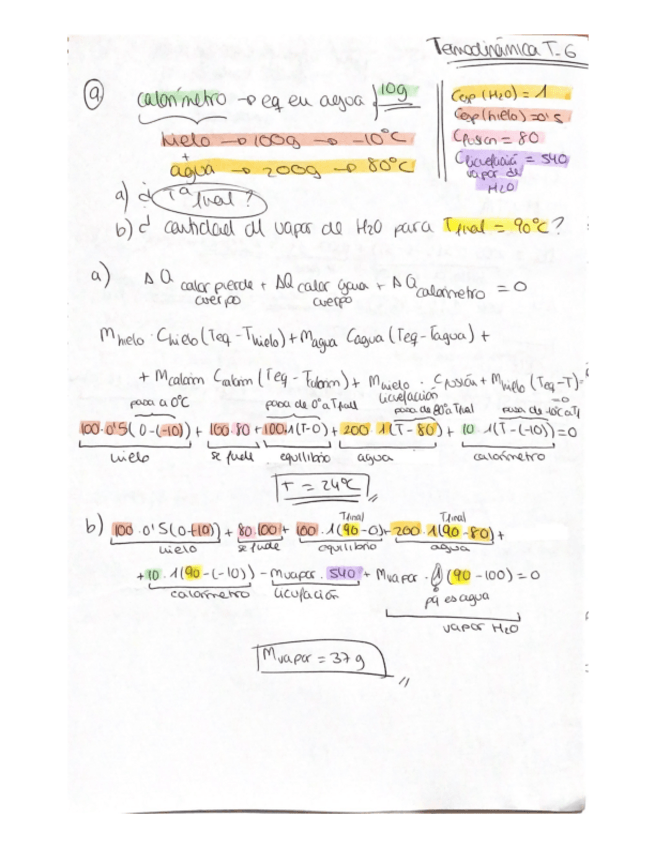 Temodinámica T.6
9
calorímetro → eq en agua } 10g
hielo → 100g → -10°C
+
agua → 200g → 80°C
Cesp (H2O) = 1
Cesp (hielo) = 0'5
Cfusión = 80
Clicuefación = 540
vapor de
H2O
a) ¿ Tª final ?
b) ¿ cantidad del vapor de H2O para Tfinal = 90°C ?
a) ΔQ calor pierde cuerpo + ΔQ calor gana cuerpo + ΔQ calorímetro = 0
Mhielo · Chielo (Teq - Thielo) + Magua Cagua (Teq - Tagua) +
+ Mcalorim Calorim (Teq - Tcalorim) + Mhielo · Cfusión + Mhielo (Teq - T) = 0
licuefación
pasa a 0°C
pasa de 0° a Tfinal
pasa de 80° a Tfinal
100·0'5(0-(-10)) + 100·80 + 100·1(T-0) + 200·1(T-80) + 10·1(T-(-10)) = 0
hielo se fude equilibrio agua calorímetro
T = 24°C
b) 100·0'5(0+10)) + 80·100 + 100·1(90-0) + 200·1(90-80) +
Tfinal Tfinal
hielo se fude equilibrio agua
+ 10·1(90-(-10)) - Mvapor·540 + Mvapor·1(90-100) = 0
calorímetro licufación pq es agua
vapor H2O
Mvapor = 37g